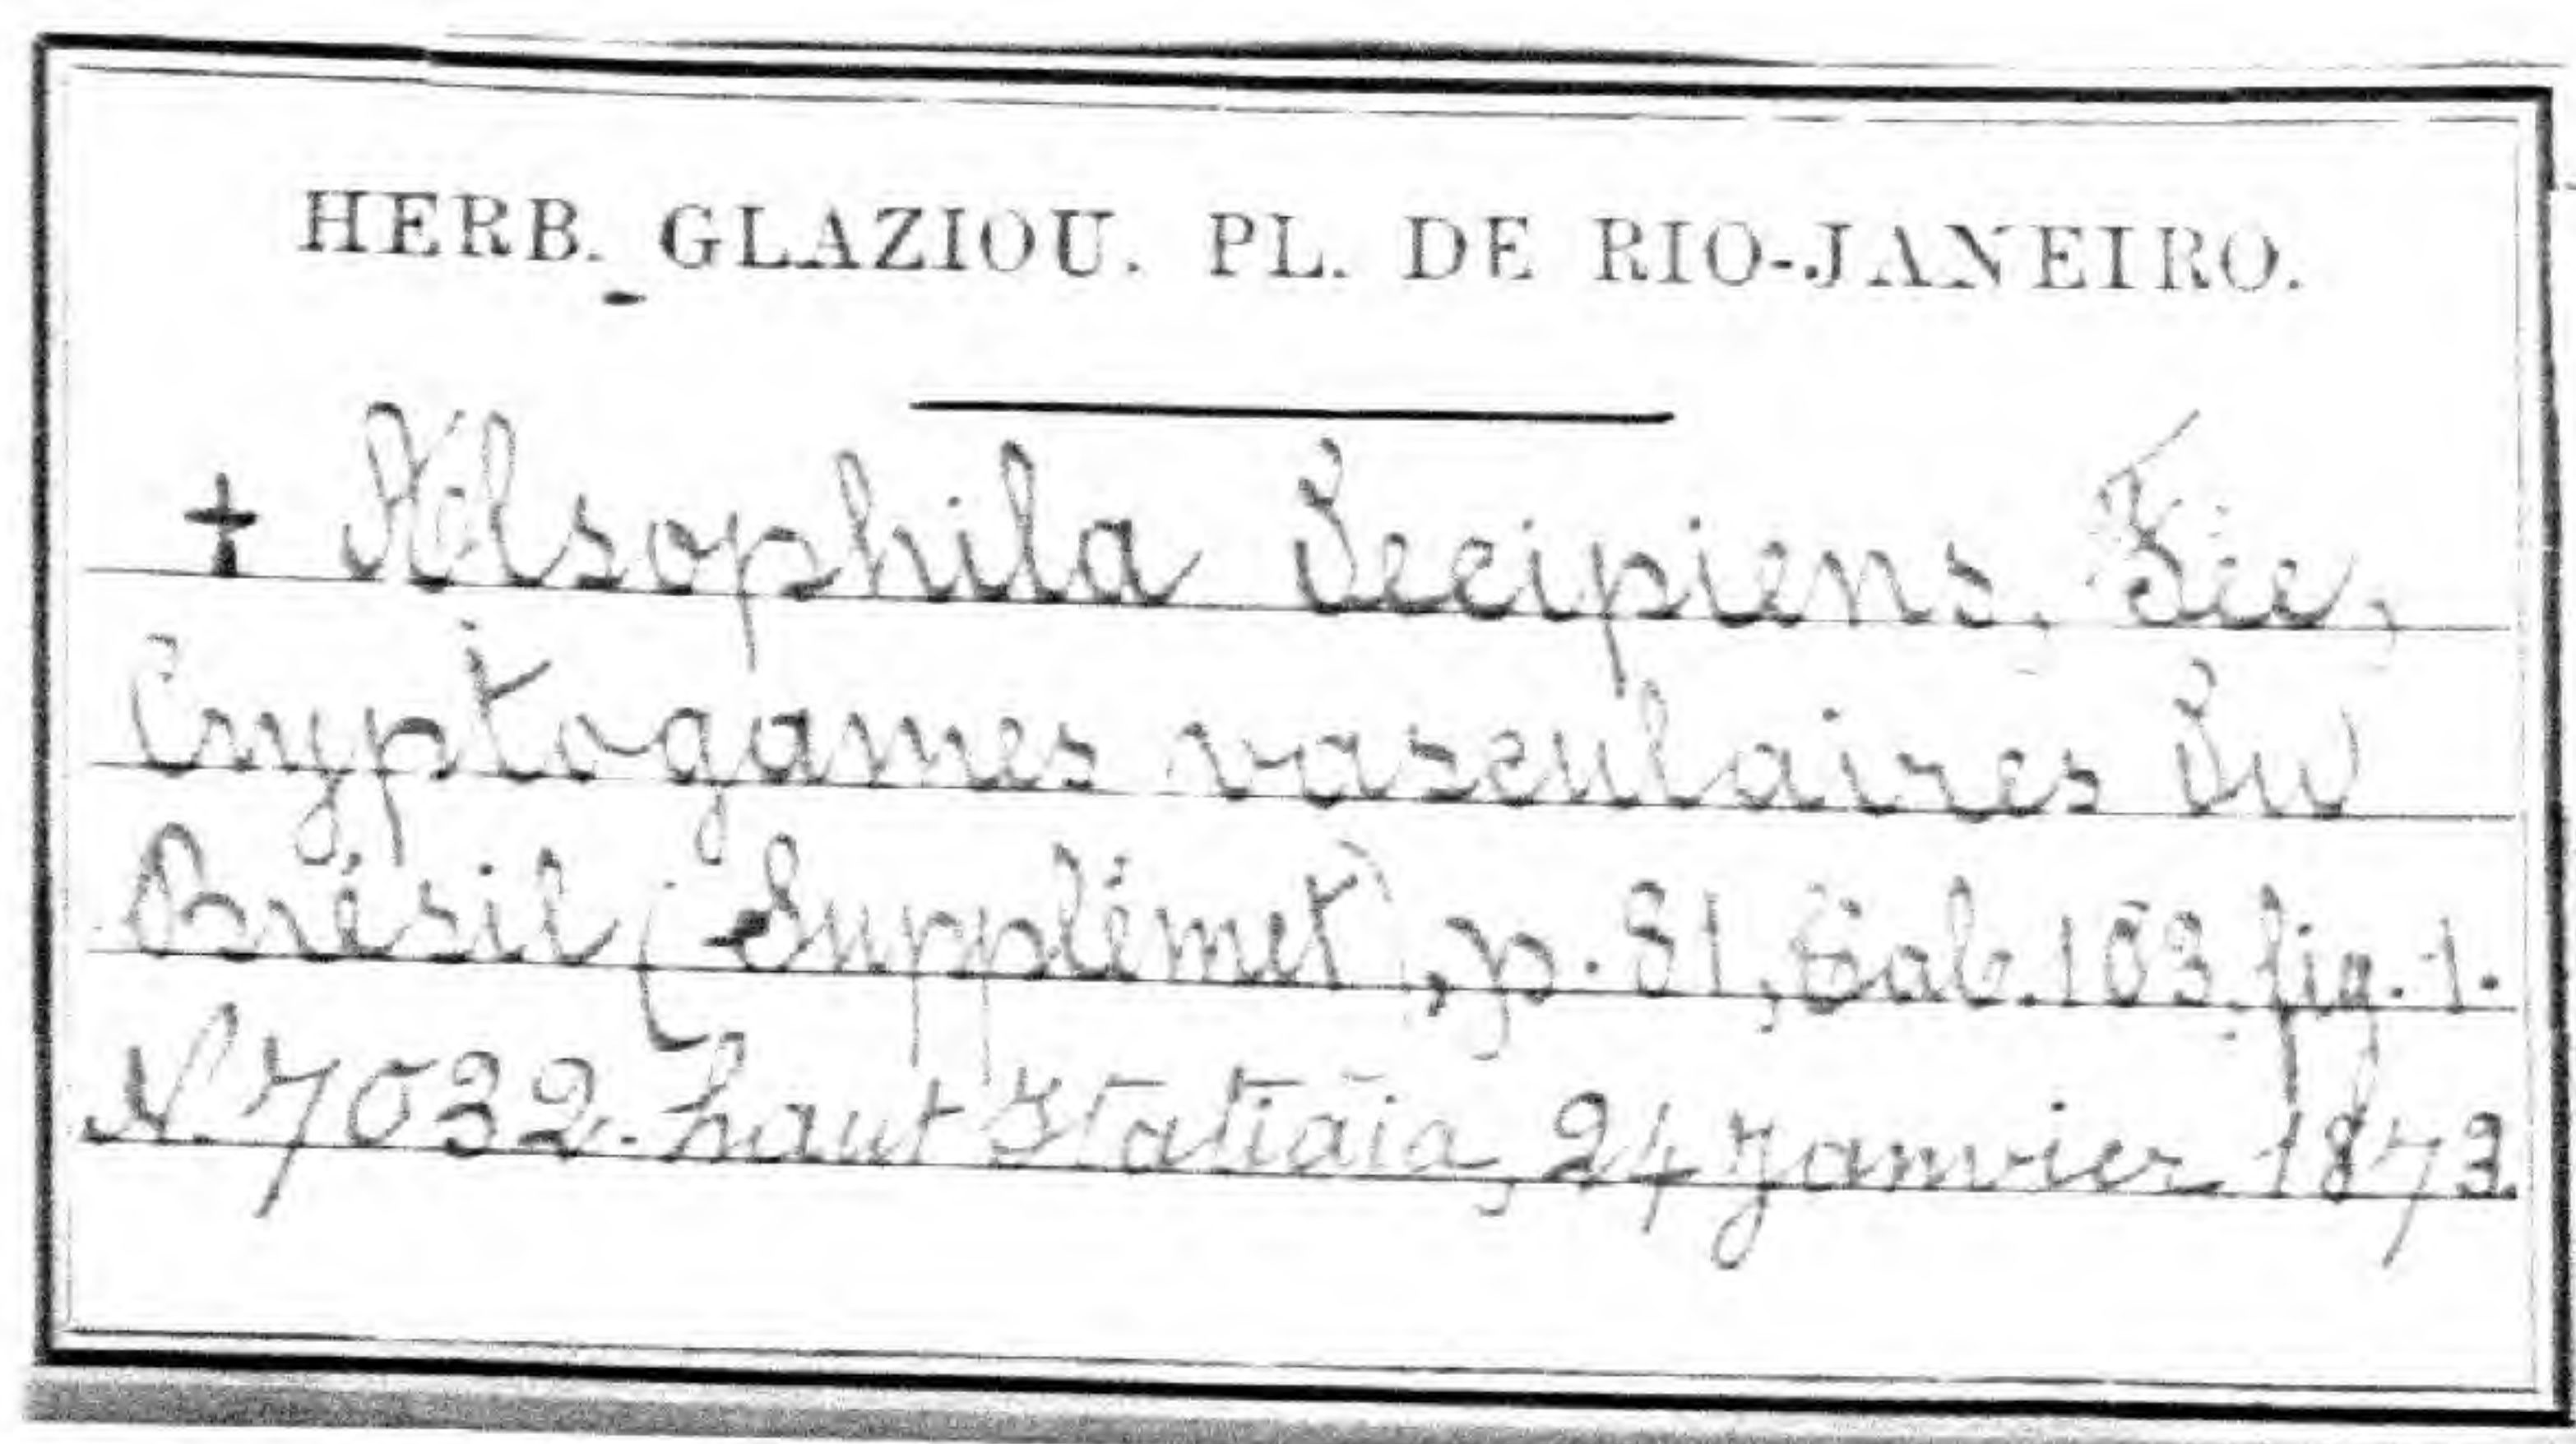 HERB. GLAZIOU. PL. DE RIO-JANEIRO.
+ Alsophila decipiens, Fée,
Cryptogames vasculaires du
Brésil (Supplémet), p. 81, Tab. 103. fig. 1.
N. 7032. haut Itatiaia, 24 Janvier 1873.